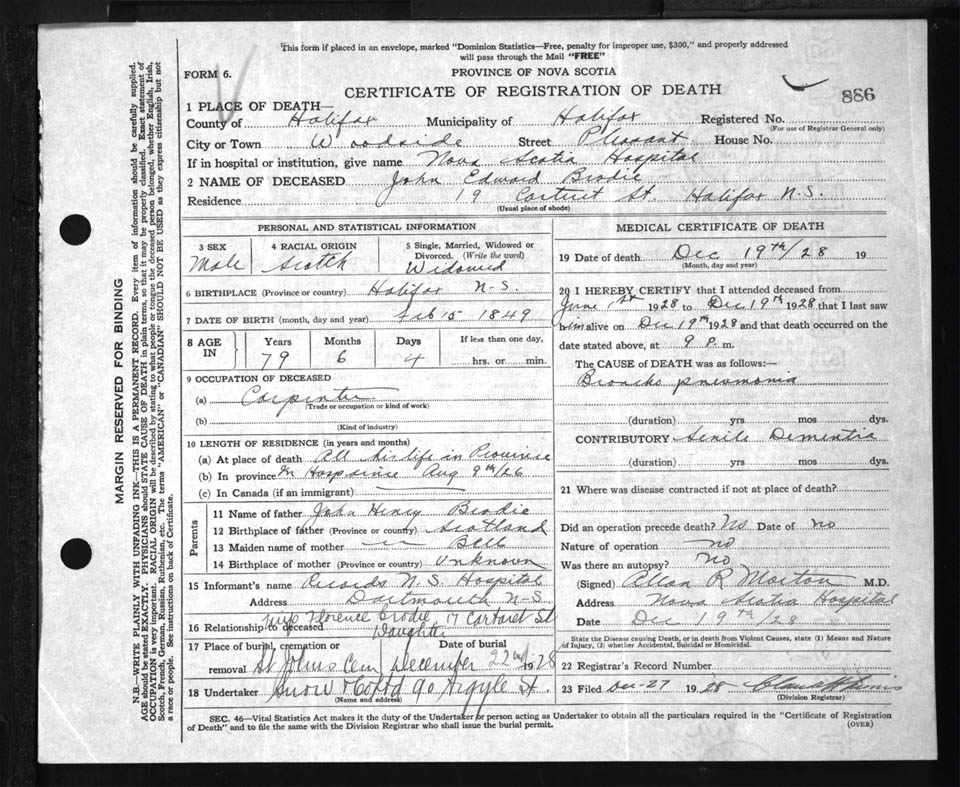 This form if placed in an envelope, marked "Dominion Statistics—Free, penalty for improper use, $300," and properly addressed
will pass through the Mail "FREE"
FORM 6.
PROVINCE OF NOVA SCOTIA
CERTIFICATE OF REGISTRATION OF DEATH
886
1 PLACE OF DEATH—
County of Halifax Municipality of Halifax Registered No.
(For use of Registrar General only)
City or Town Woodside Street Pleasant House No.
If in hospital or institution, give name Nova Scotia Hospital
2 NAME OF DECEASED John Edward Brodie
Residence 19 St. Halifax N.S.
(Usual place of abode)
PERSONAL AND STATISTICAL INFORMATION
3 SEX
Male
4 RACIAL ORIGIN
Scotch
5 Single, Married, Widowed or
Divorced. (Write the word)
Widowed
6 BIRTHPLACE (Province or country) Halifax N-S.
7 DATE OF BIRTH (month, day and year) Feb 15 1849
8 AGE IN
Years Months Days If less than one day,
79 6 4 hrs. or min.
9 OCCUPATION OF DECEASED
(a) Carpenter
(Trade or occupation or kind of work)
(b)
(Kind of industry)
10 LENGTH OF RESIDENCE (in years and months)
(a) At place of death All his life in Province
(b) In province In Hosp since Aug 9th/26
(c) In Canada (if an immigrant)
Parents
11 Name of father John Henry Brodie
12 Birthplace of father (Province or country) Scotland
13 Maiden name of mother Bell
14 Birthplace of mother (Province or country) Unknown
15 Informant's name Records N.S. Hospital
Address Dartmouth N-S
16 Relationship to deceased Miss Florence Brodie 17 Cartaret St
Daughter
17 Place of burial, cremation or removal St Johns Cem
Date of burial December 22nd 1928
18 Undertaker Snow & Co Ltd 90 Argyle St.
(Name and address)
MEDICAL CERTIFICATE OF DEATH
19 Date of death Dec 19th/28 19
(Month, day and year)
20 I HEREBY CERTIFY that I attended deceased from
June 1st 1928 to Dec 19th 1928 that I last saw
him alive on Dec 19th 1928 and that death occurred on the
date stated above, at 9 P. m.
The CAUSE OF DEATH was as follows:—
Broncho pneumonia
(duration) yrs mos dys.
CONTRIBUTORY Senile Dementia
(duration) yrs mos dys.
21 Where was disease contracted if not at place of death?
Did an operation precede death? No Date of no
Nature of operation no
Was there an autopsy? no
(Signed) Allan R Morton M.D.
Address Nova Scotia Hospital
Date Dec 19th/28
State the Disease causing Death, or in death from Violent Causes, state (1) Means and Nature
of Injury, (2) whether Accidental, Suicidal or Homicidal.
22 Registrar's Record Number
23 Filed Dec-27 1928
(Division Registrar)
SEC. 46—Vital Statistics Act makes it the duty of the Undertaker or person acting as Undertaker to obtain all the particulars required in the "Certificate of Registration
of Death" and to file the same with the Division Registrar who shall issue the burial permit.
(OVER)
MARGIN RESERVED FOR BINDING
N.B.—WRITE PLAINLY WITH UNFADING INK—THIS IS A PERMANENT RECORD. Every item of information should be carefully supplied.
AGE should be stated EXACTLY. PHYSICIANS should STATE CAUSE OF DEATH in plain terms, so that it may be properly classified. Exact statement of
OCCUPATION is very important. RACIAL ORIGIN will be described by stating to what people or tongue the deceased person belonged, whether English, Irish,
Scotch, French, German, Russian, Ruthenian, etc. The terms "AMERICAN" or "CANADIAN" SHOULD NOT BE USED as they express citizenship but not
a race or people. See instructions on back of Certificate.